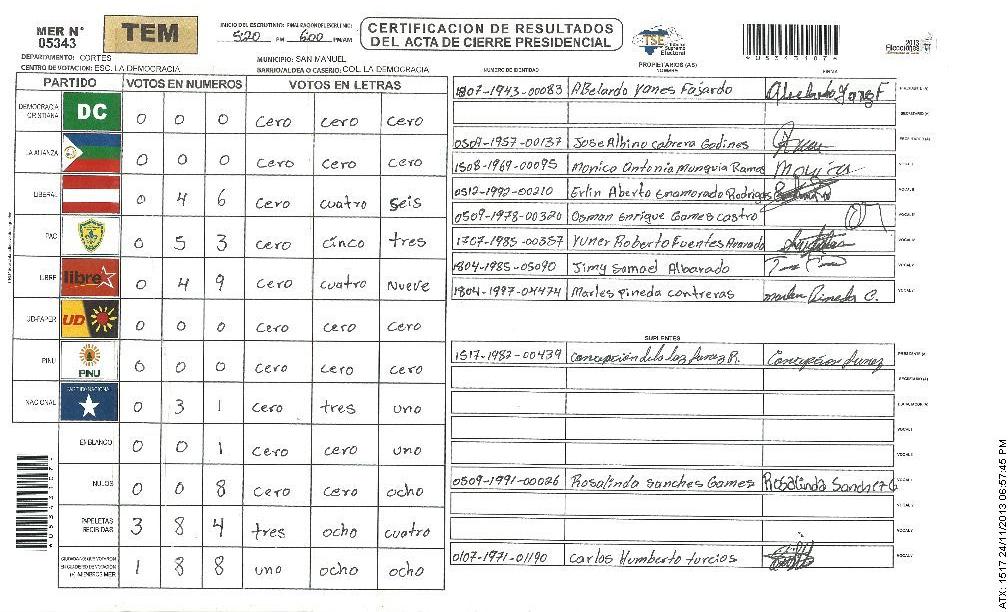 MER Nº 05343 TEM INICIO DEL ESCRUTINIO: 5:20 PM 6:00 PM/AM
CERTIFICACION DE RESULTADOS
DEL ACTA DE CIERRE PRESIDENCIAL
TSE Tribunal Supremo Electoral
* 0 5 3 4 3 1 0 7 *
2013 Elecciones
DEPARTAMENTO: CORTES MUNICIPIO: SAN MANUEL
CENTRO DE VOTACION: ESC. LA DEMOCRACIA BARRIO/ALDEA O CASERIO: COL. LA DEMOCRACIA
PARTIDO VOTOS EN NUMEROS VOTOS EN LETRAS
DEMOCRACIA CRISTIANA DC 0 0 0 cero cero cero
LA ALIANZA 0 0 0 cero cero cero
LIBERAL 0 4 6 cero cuatro seis
PAC 0 5 3 cero cinco tres
LIBRE libre 0 4 9 cero cuatro nueve
UD-FAPER UD 0 0 0 cero cero cero
PINU PINU 0 0 0 cero cero cero
NACIONAL PARTIDO NACIONAL 0 3 1 cero tres uno
EN BLANCO 0 0 1 cero cero uno
NULOS 0 0 8 cero cero ocho
PAPELETAS RECIBIDAS 3 8 4 tres ocho cuatro
CIUDADANOS QUE VOTARON 1 8 8 uno ocho ocho
NUMERO DE IDENTIDAD PROPIETARIOS (AS) NOMBRE FIRMA
1807-1943-00083 Abelardo Yanes Fajardo
SECRETARIO (A)
0509-1957-00137 Jose Albino cabrera Godines
1508-1969-00095 Monica Antonia Munguia Ramos
0512-1992-00210 Erlin Aberto Enamorado Rodrigas
0509-1978-00320 Osman Enrique Gomes castro
1707-1985-00357 Yuner Roberto Fuentes Alvarado
1804-1985-05090 Jimy Samael Albarado
1804-1997-04474 Marles pineda contreras Marlen Pineda C.
SUPLENTES
1517-1982-00439
0509-1991-00026 Rosalinda Sanches Gomes Rosalinda Sanchez G
0107-1971-01190 Carlos Humberto turcios
* 0 5 3 4 3 1 0 7 *
ATX: 1517 24/11/2013 06:57:45 PM